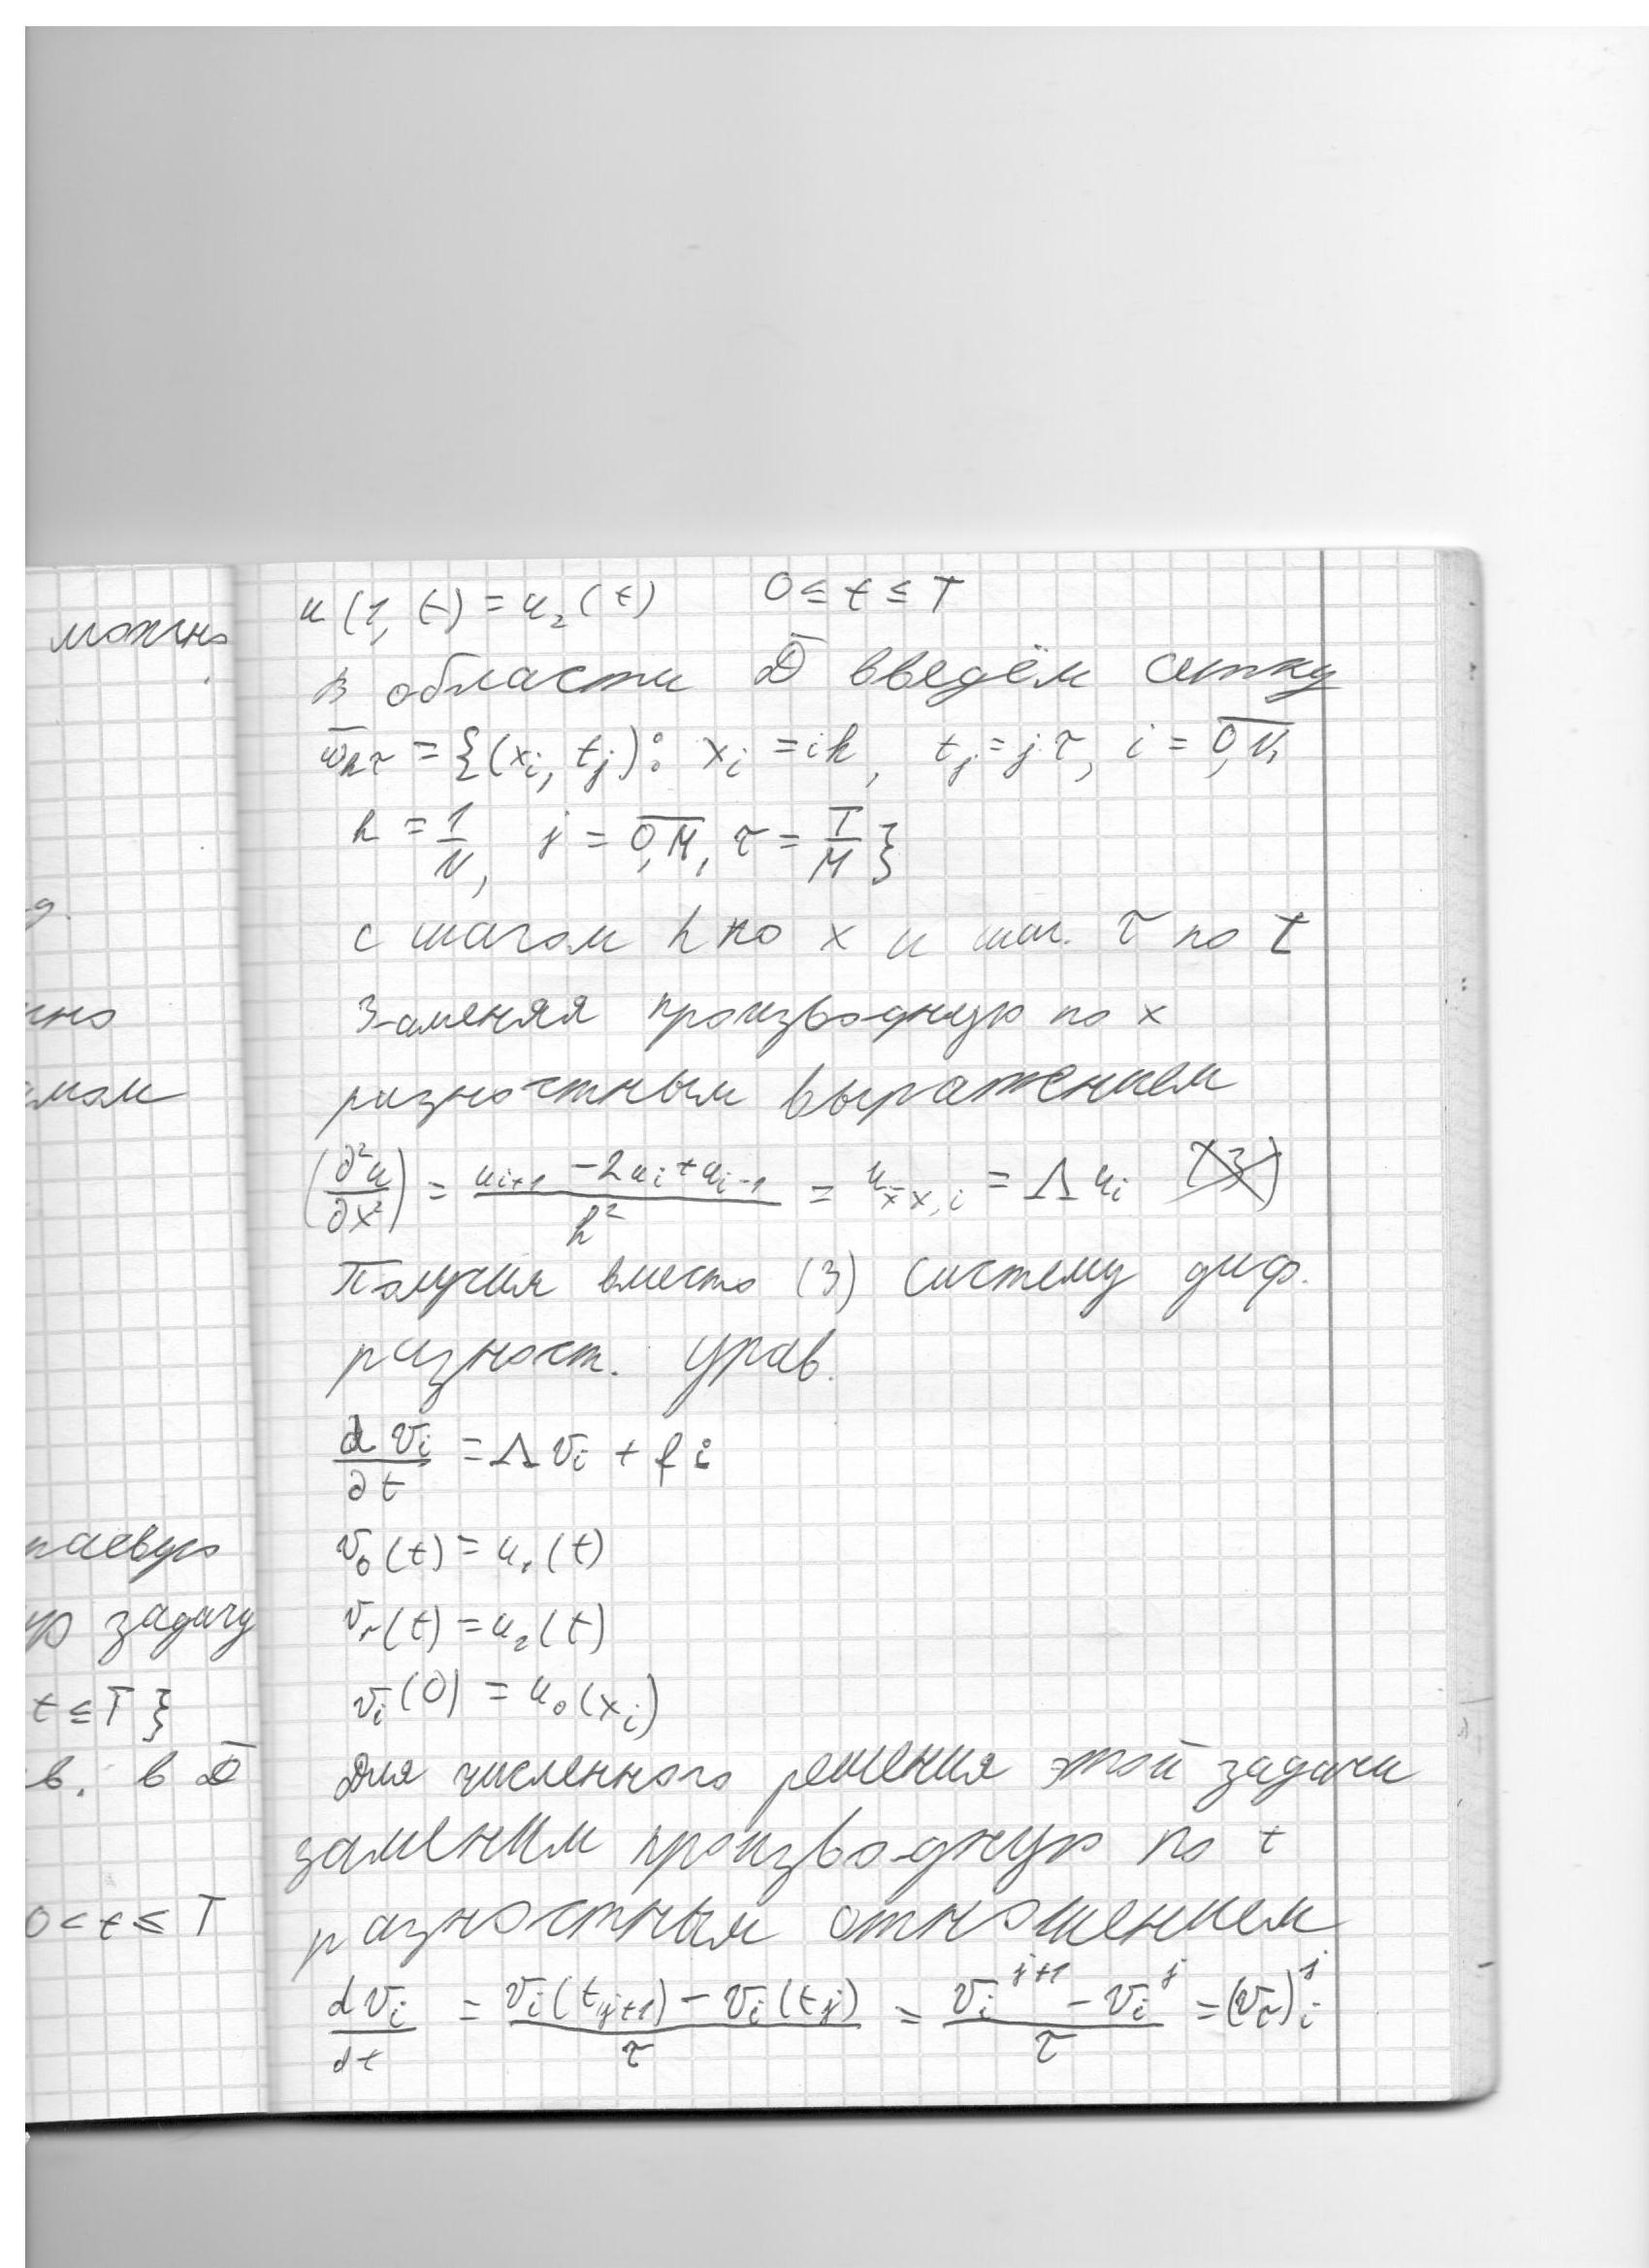 можно
g.
нно
мом
раевую
ую задачу
t ≤ T }
в. в D̄
0 < t ≤ T
u(1, t) = u₂(t) 0 ≤ t ≤ T
В области D̄ введём сетку
ω̄hτ = {(xi, tj): xi = ih, tj = jτ, i = 0,N,
h = 1/N, j = 0,M, τ = T/M}
с шагом h по x и шаг. τ по t
Заменяя производную по x
разностным выражением
(∂²u/∂x²) = (ui+1 - 2ui + ui-1)/h² = ux̄x,i = Λui (3)
Получим вместо (3) систему диф.
разност. урав.
dvi/∂t = Λvi + fi
v₀(t) = u₁(t)
vN(t) = u₂(t)
vi(0) = u₀(xi)
Для численного решения этой задачи
заменим производную по t
разностным отношением
dvi/dt = (vi(tj+1) - vi(tj))/τ = (vi^j+1 - vi^j)/τ = (vτ)i^j